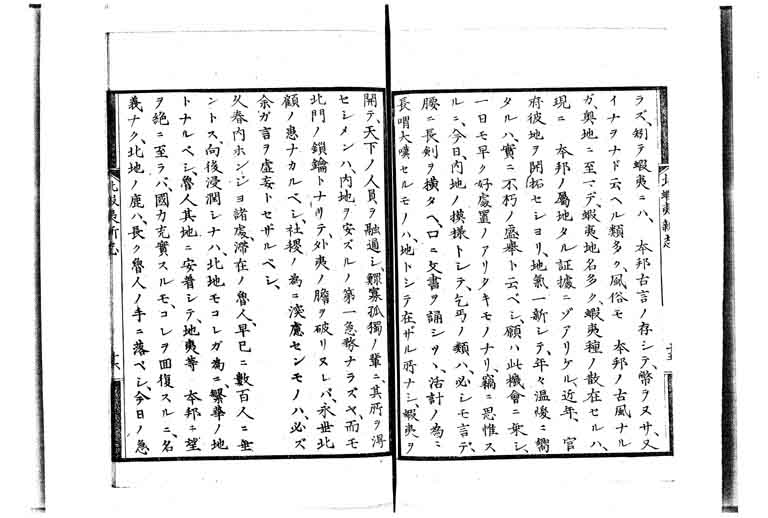 ラズ、別テ蝦夷ニハ、本邦古言ノ存シテ、幣ラヌサ、又
イナヲナド云ヘル類多ク、風俗モ　本邦ノ古風ナル
ガ、奥地ニ至マデ、蝦夷地名多ク、蝦夷種ノ散在セルハ、
現ニ　本邦ノ属地タル證據ニゾアリケル、近年、官
府彼地ヲ開拓セシヨリ、地氣一新シテ、年々温暖ニ嚮
タルハ、實ニ不朽ノ盛舉ト云ベシ、願ハ此機會ニ乗シ、
一日モ早ク好處置ノアリタキモノナリ、竊ニ思惟ス
ルニ、今日、内地ノ模様トシテ、乞丐ノ類ハ、必シモ言デ、
腰ニ長剣ヲ横タヘ、口ニ文書ヲ誦シツヽ、活計ノ為ニ
長喟大嘆セルモノハ、地トシテ在ザル所ナシ、蝦夷ヲ
北蝦夷新志
十五
開テ、天下ノ人員ヲ融通シ、鰥寡孤獨ノ輩ニ、其所ヲ得
セシメンハ、内地ヲ安ズルノ第一急務ナラズヤ、而モ
北門ノ鎖鑰トナリテ、外夷ノ膽ヲ破リヌレバ、永世北
顧ノ患ナカルベシ、社稷ノ為ニ深慮センモノハ、必ズ
余ガ言ヲ虚妄トセザルベシ、
久春内ホンジヨ諸處、滞在ノ魯人、早已ニ數百人ニ垂
ントス、向後浸潤シナハ、北地モコレガ為ニ、繁華ノ地
トナルベシ、魯人其地ニ安着シテ、地夷等　本邦ニ望
ヲ絶ニ至ラバ、國力充實スルモ、コレヲ回復スルニ、名
義ナク、北地ノ鹿ハ、長ク魯人ノ手ニ落ベシ、今日ノ急
北蝦夷新志
十六